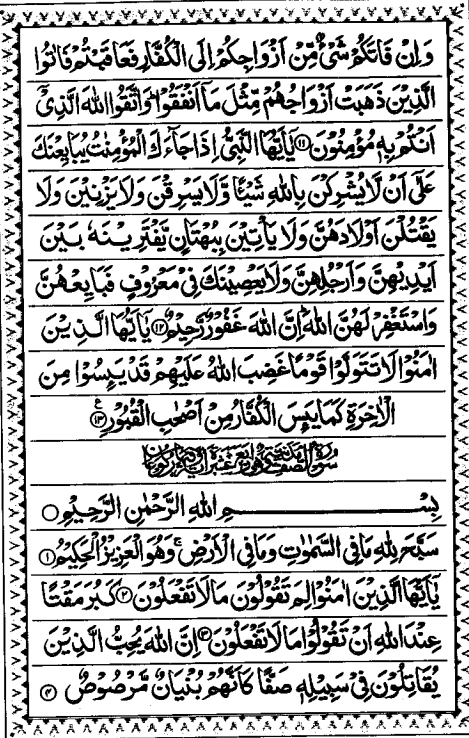 وَاِنْ فَاتَكُمْ شَىْءٌ مِّنْ اَزْوَاجِكُمْ اِلَى الْكُفَّارِ فَعَاقَبْتُمْ فَاٰتُوا
الَّذِيْنَ ذَهَبَتْ اَزْوَاجُهُمْ مِّثْلَ مَاۤ اَنْفَقُوْا ؕ وَاتَّقُوا اللّٰهَ الَّذِىْۤ
اَنْتُمْ بِهٖ مُؤْمِنُوْنَ ﴿۱۱﴾ يٰۤاَيُّهَا النَّبِىُّ اِذَا جَآءَكَ الْمُؤْمِنٰتُ يُبَايِعْنَكَ
عَلٰۤى اَنْ لَّا يُشْرِكْنَ بِاللّٰهِ شَيْئًا وَّلَا يَسْرِقْنَ وَلَا يَزْنِيْنَ وَلَا
يَقْتُلْنَ اَوْلَادَهُنَّ وَلَا يَاْتِيْنَ بِبُهْتَانٍ يَّفْتَرِيْنَهٗ بَيْنَ
اَيْدِيْهِنَّ وَاَرْجُلِهِنَّ وَلَا يَعْصِيْنَكَ فِىْ مَعْرُوْفٍ فَبَايِعْهُنَّ
وَاسْتَغْفِرْ لَهُنَّ اللّٰهَ ؕ اِنَّ اللّٰهَ غَفُوْرٌ رَّحِيْمٌ ﴿۱۲﴾ يٰۤاَيُّهَا الَّذِيْنَ
اٰمَنُوْا لَا تَتَوَلَّوْا قَوْمًا غَضِبَ اللّٰهُ عَلَيْهِمْ قَدْ يَئِسُوْا مِنَ
الْاٰخِرَةِ كَمَا يَئِسَ الْكُفَّارُ مِنْ اَصْحٰبِ الْقُبُوْرِ ﴿۱۳﴾ ع
بِسْمِ اللّٰهِ الرَّحْمٰنِ الرَّحِيْمِ
سَبَّحَ لِلّٰهِ مَا فِى السَّمٰوٰتِ وَمَا فِى الْاَرْضِ ۚ وَهُوَ الْعَزِيْزُ الْحَكِيْمُ ﴿۱﴾
يٰۤاَيُّهَا الَّذِيْنَ اٰمَنُوْا لِمَ تَقُوْلُوْنَ مَا لَا تَفْعَلُوْنَ ﴿۲﴾ كَبُرَ مَقْتًا
عِنْدَ اللّٰهِ اَنْ تَقُوْلُوْا مَا لَا تَفْعَلُوْنَ ﴿۳﴾ اِنَّ اللّٰهَ يُحِبُّ الَّذِيْنَ
يُقَاتِلُوْنَ فِىْ سَبِيْلِهٖ صَفًّا كَاَنَّهُمْ بُنْيَانٌ مَّرْصُوْصٌ ﴿۴﴾